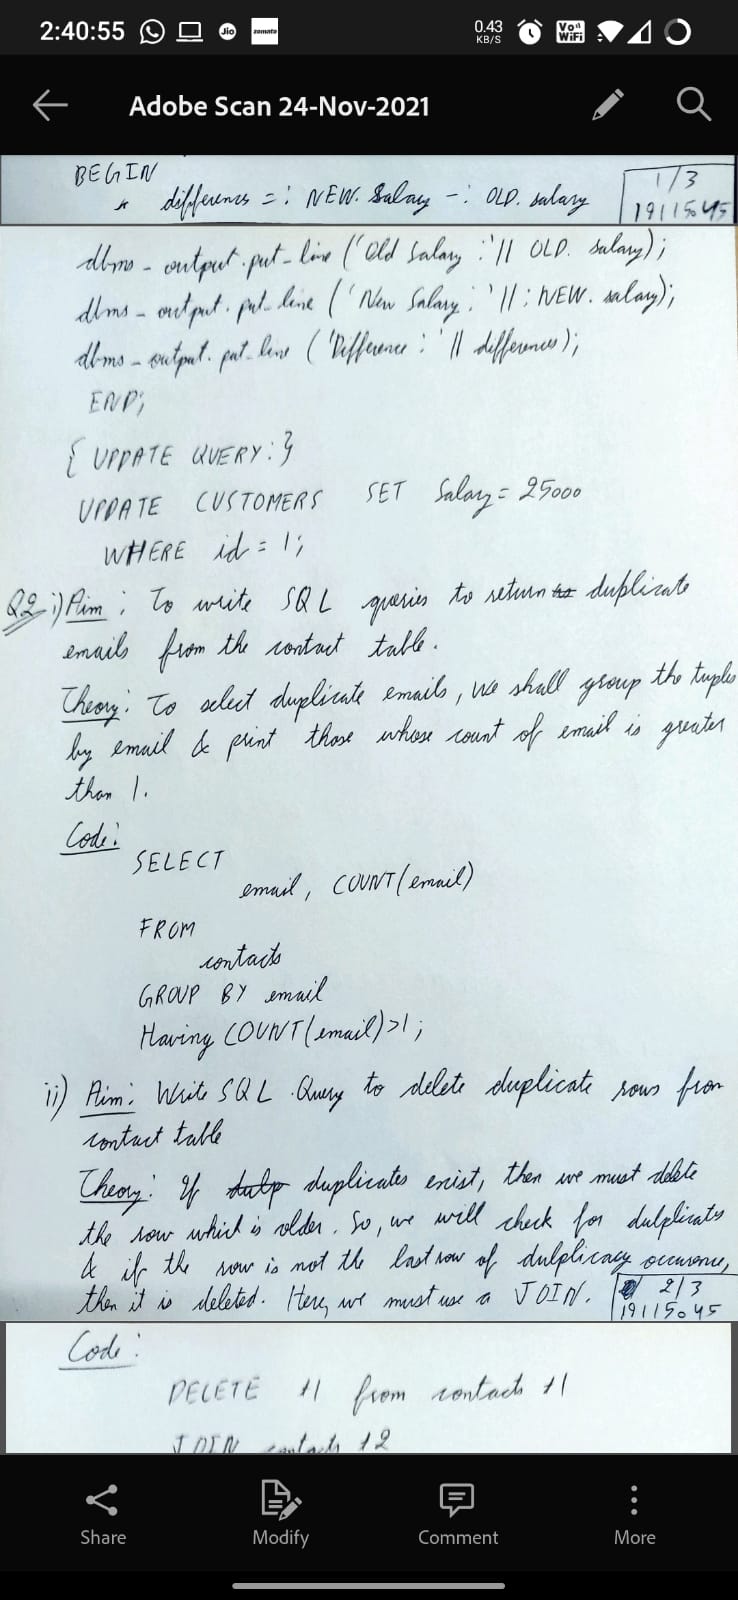 2:40:55
Jio
zomato
0.43
KB/S
Vo))
WiFi
Adobe Scan 24-Nov-2021
BEGIN
differences = : NEW. Salary - : OLD. salary
1/3
19115045
dbms - output.put - line ('Old Salary : '|| OLD. salary);
dbms - output. put - line ('New Salary : '|| : NEW. salary);
dbms - output. put - line ('Difference : ' || differences);
END;
{ UPDATE QUERY : }
UPDATE CUSTOMERS SET Salary = 25000
WHERE id = 1;
Q2 i) Aim : To write SQL queries to return duplicate
emails from the contact table.
Theory : To select duplicate emails, we shall group the tuples
by email & print those whose count of email is greater
than 1.
Code :
SELECT
email, COUNT(email)
FROM
contacts
GROUP BY email
Having COUNT(email)>1;
ii) Aim : Write SQL Query to delete duplicate rows from
contact table
Theory : If dulp duplicates exist, then we must delete
the row which is older. So, we will check for dulplicates
& if the row is not the last row of dulplicacy occurence,
then it is deleted. Here, we must use a JOIN.
2/3
19115045
Code :
DELETE t1 from contacts t1
JOIN contacts t2
Share
Modify
Comment
More